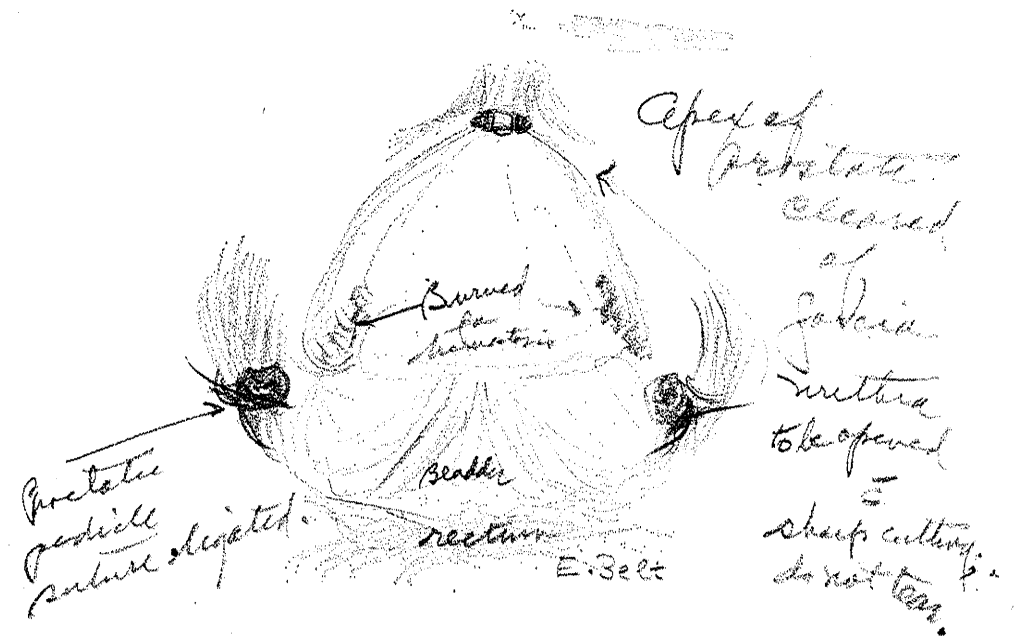 Apex of
prostate
cleared
of
fascia
urethra
to be opened
=
sharp cutting.
do not tear.
Burned
for
hemostasis
Prostatic
pedicle
suture ligated.
Bladder
rectum
E. Belt